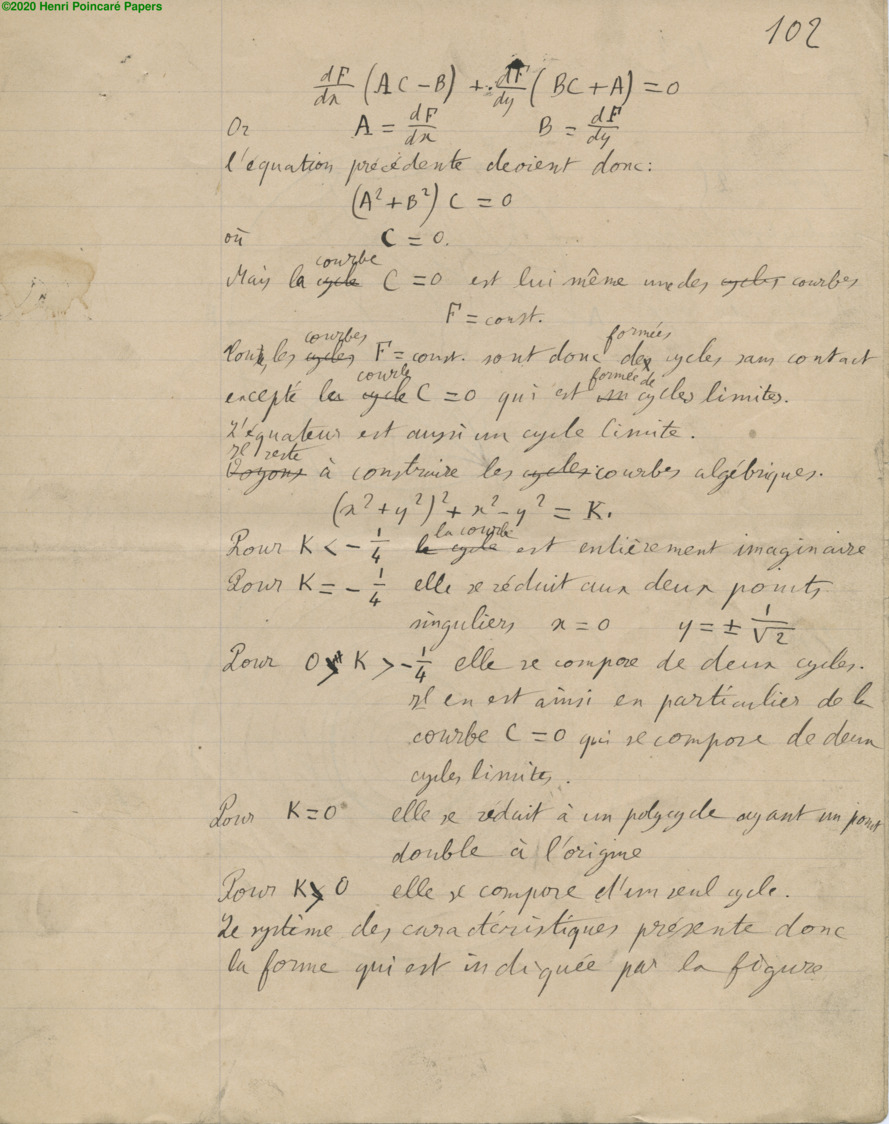 ©2020 Henri Poincaré Papers
102
dF/dx (AC - B) + dF/dy (BC + A) = 0
Or A = dF/dx B = dF/dy
l'équation précédente devient donc:
(A² + B²) C = 0
où C = 0.
courbe
Mais la cycle C = 0 est lui même une des cycles courbes
F = const.
courbes formées
Tous les cycles F = const. sont donc des cycles sans contact
courbe formée de
excepté le cycle C = 0 qui est un cycles limites.
L'équateur est aussi un cycle limite.
Il reste
Voyons à construire les cycles courbes algébriques.
(x² + y²)² + x² - y² = K.
la courbe
Pour K < - 1/4 le cycle est entièrement imaginaire
Pour K = - 1/4 elle se réduit aux deux points
singuliers x = 0 y = ± 1/√2
Pour 0 > K > - 1/4 elle se compose de deux cycles.
Il en est ainsi en particulier de la
courbe C = 0 qui se compose de deux
cycles limites.
Pour K = 0 elle se réduit à un polycycle ayant un point
double à l'origine
Pour K > 0 elle se compose d'un seul cycle.
Le système des caractéristiques présente donc
la forme qui est indiquée par la figure